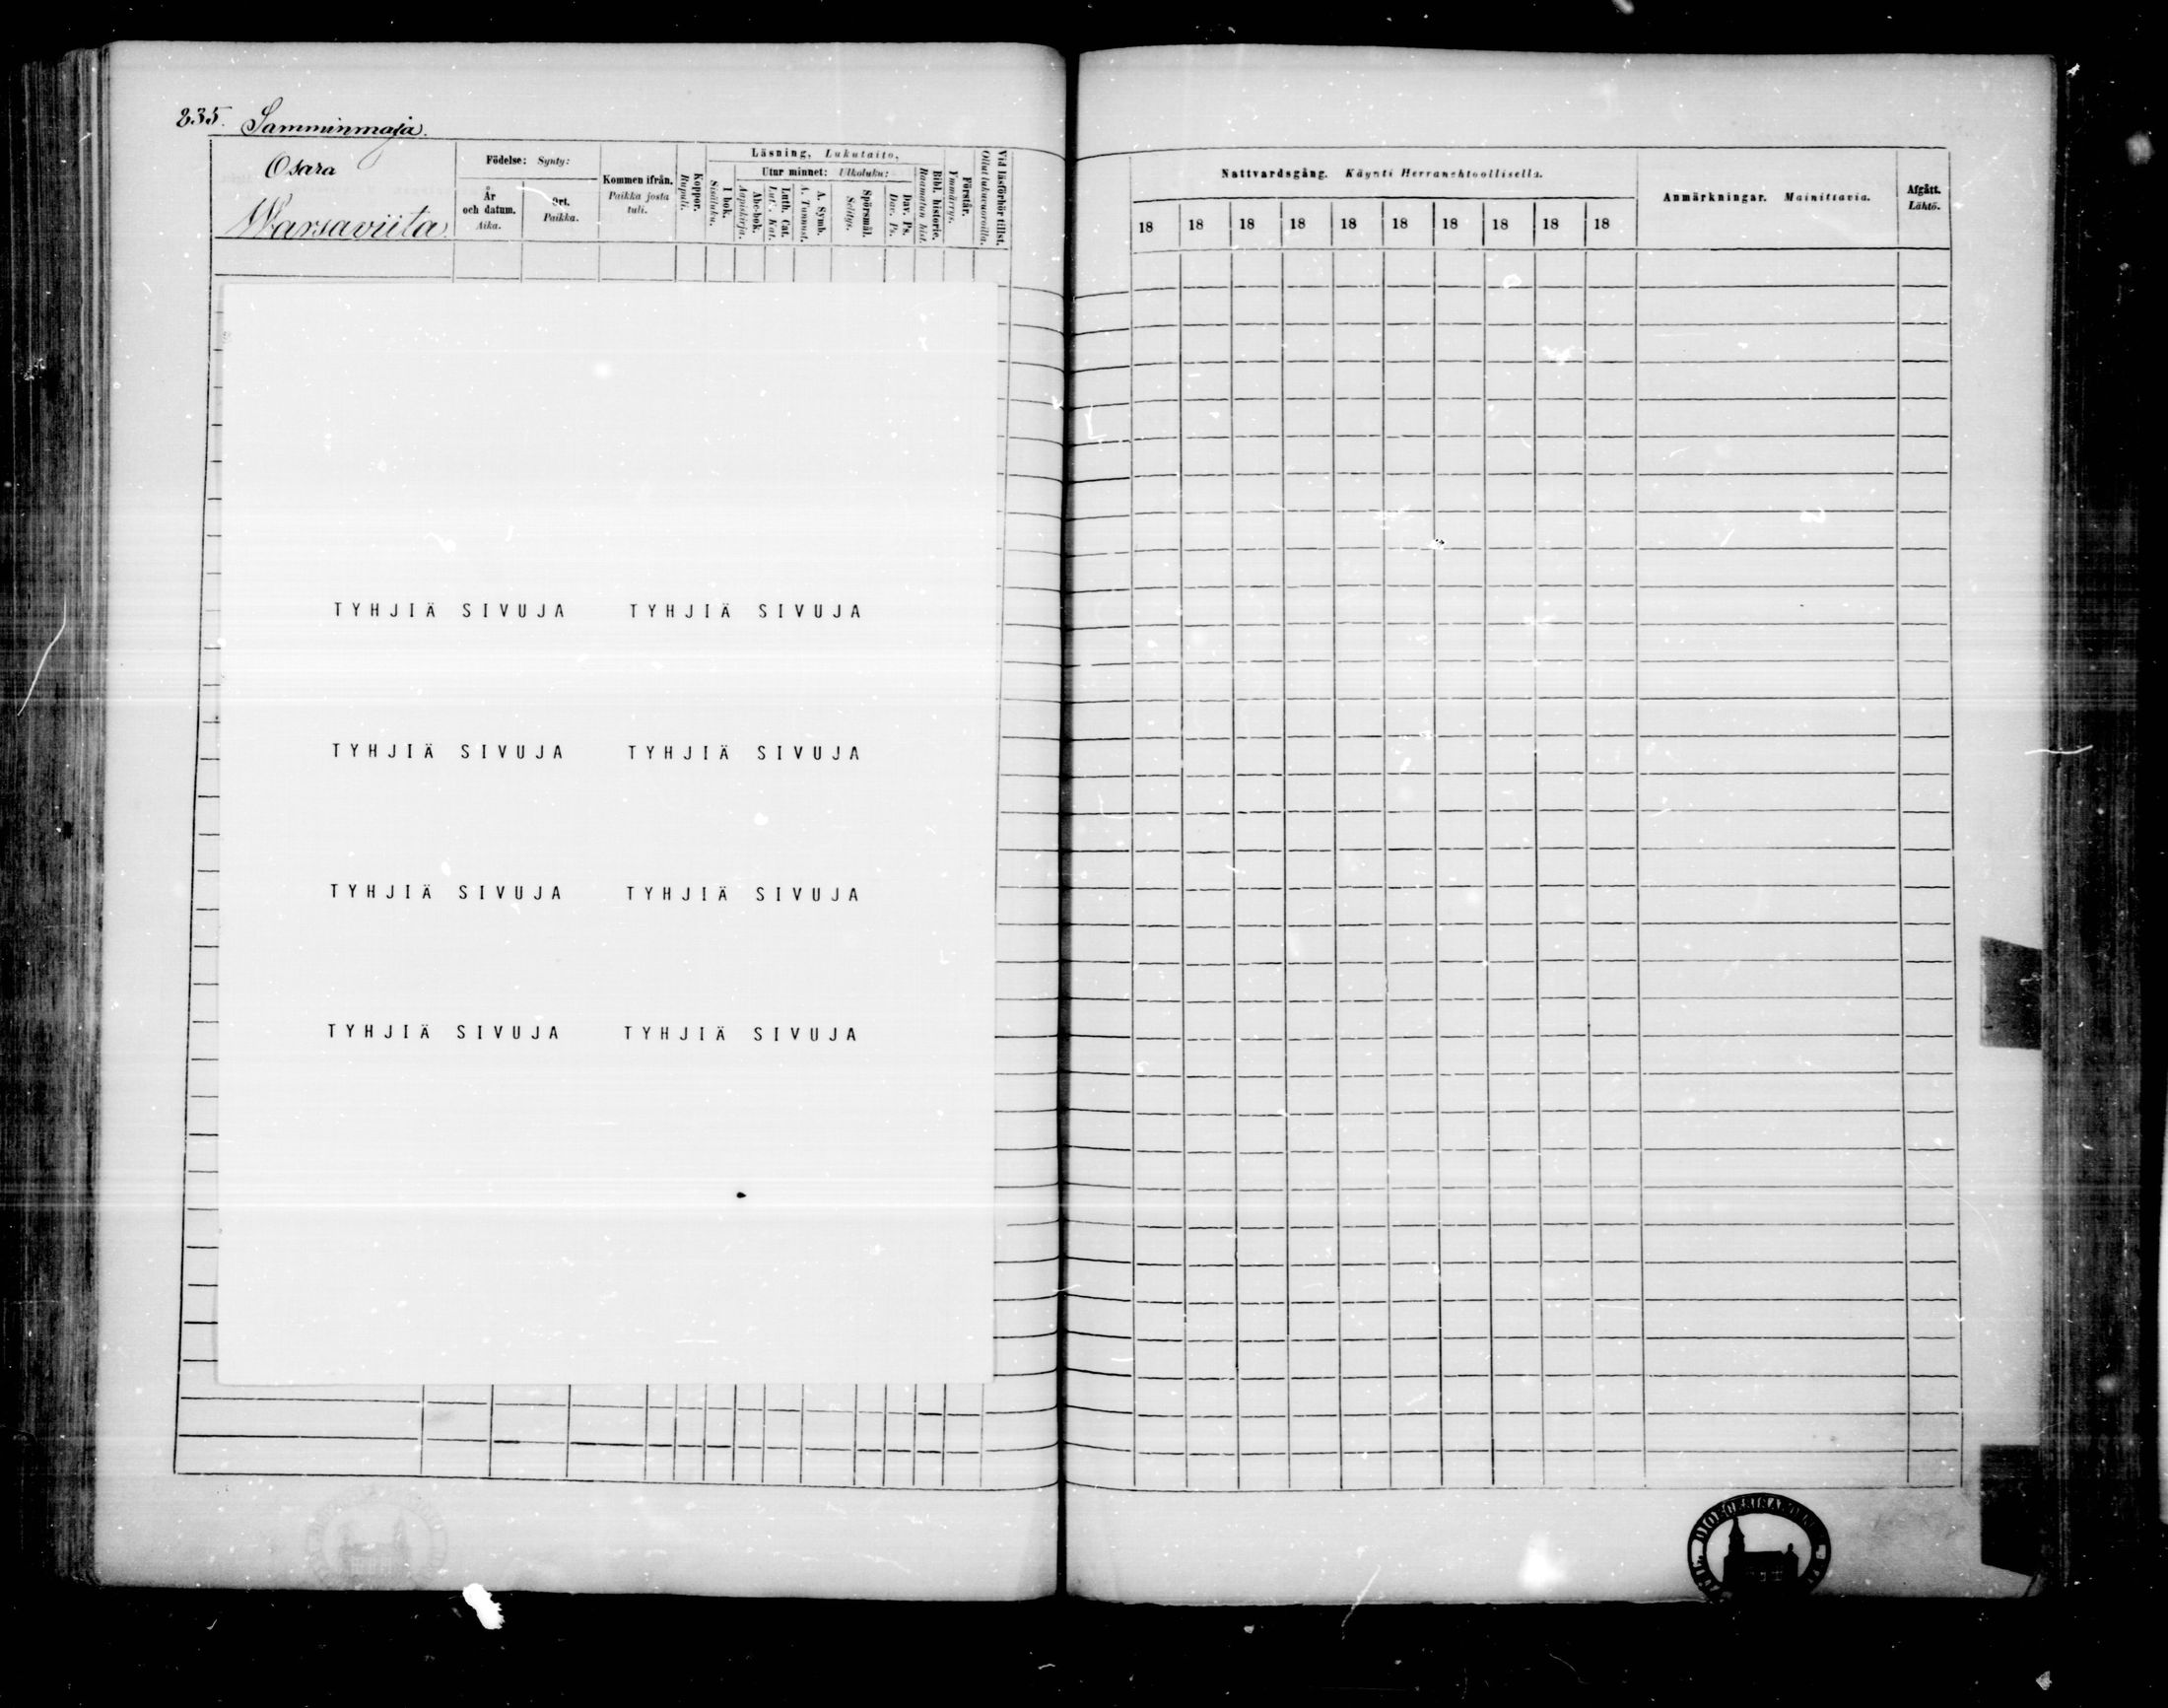 235. Samminmaja.
Osara
Warsaviita
Födelse: Synty:
År och datum. Aika.
Ort. Paikka.
Kommen ifrån. Paikka josta tuli.
Koppor. Rupuli.
Läsning, Lukutaito,
I bok. Sisältuku.
Utur minnet: Ulkoluku:
Abc-bok. Aapiskirja.
Luth. Cat. Lut. Kat.
A. Symb. A. Tunnust.
Spörsmål. Selitys.
Dav. Ps. Dav. Ps.
Bibl. historie. Raamatun hist.
Förstår. Ymmärrys.
Vid läsförhör tillst. Ollut lukuvuoroilla.
Nattvardsgång. Käynti Herranehtoollisella.
18 18 18 18 18 18 18 18 18 18
Anmärkningar. Mainittavia.
Afgått. Lähtö.
TYHJIÄ SIVUJA TYHJIÄ SIVUJA
TYHJIÄ SIVUJA TYHJIÄ SIVUJA
TYHJIÄ SIVUJA TYHJIÄ SIVUJA
TYHJIÄ SIVUJA TYHJIÄ SIVUJA